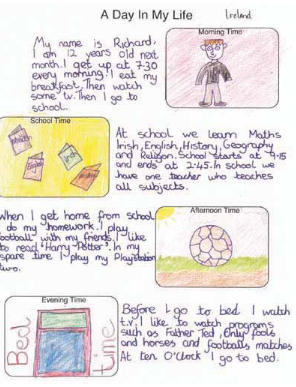 A Day In My Life
Ireland
My name is Richard,
I am 12 years old next
month. I get up at 7:30
every morning. I eat my
breakfast. Then watch
some tv. Then I go to
school.
Morning Time
School Time
Irish
At school we learn Maths
Irish, English, History, Geography
and Religion. School starts at 9.15
and ends at 2.45. In school we
have one teacher who teaches
all subjects.
When I get home from school
I do my homework. I play
football with my friends. I like
to read "Harry Potter". In my
spare time I play my Playstation
two.
Afternoon Time
Evening Time
Bed time
Before I go to bed I watch
t.v. I like to watch programs
such as Father Ted, Only fools
and horses and footballs matches
At ten O'Clock I go to bed.